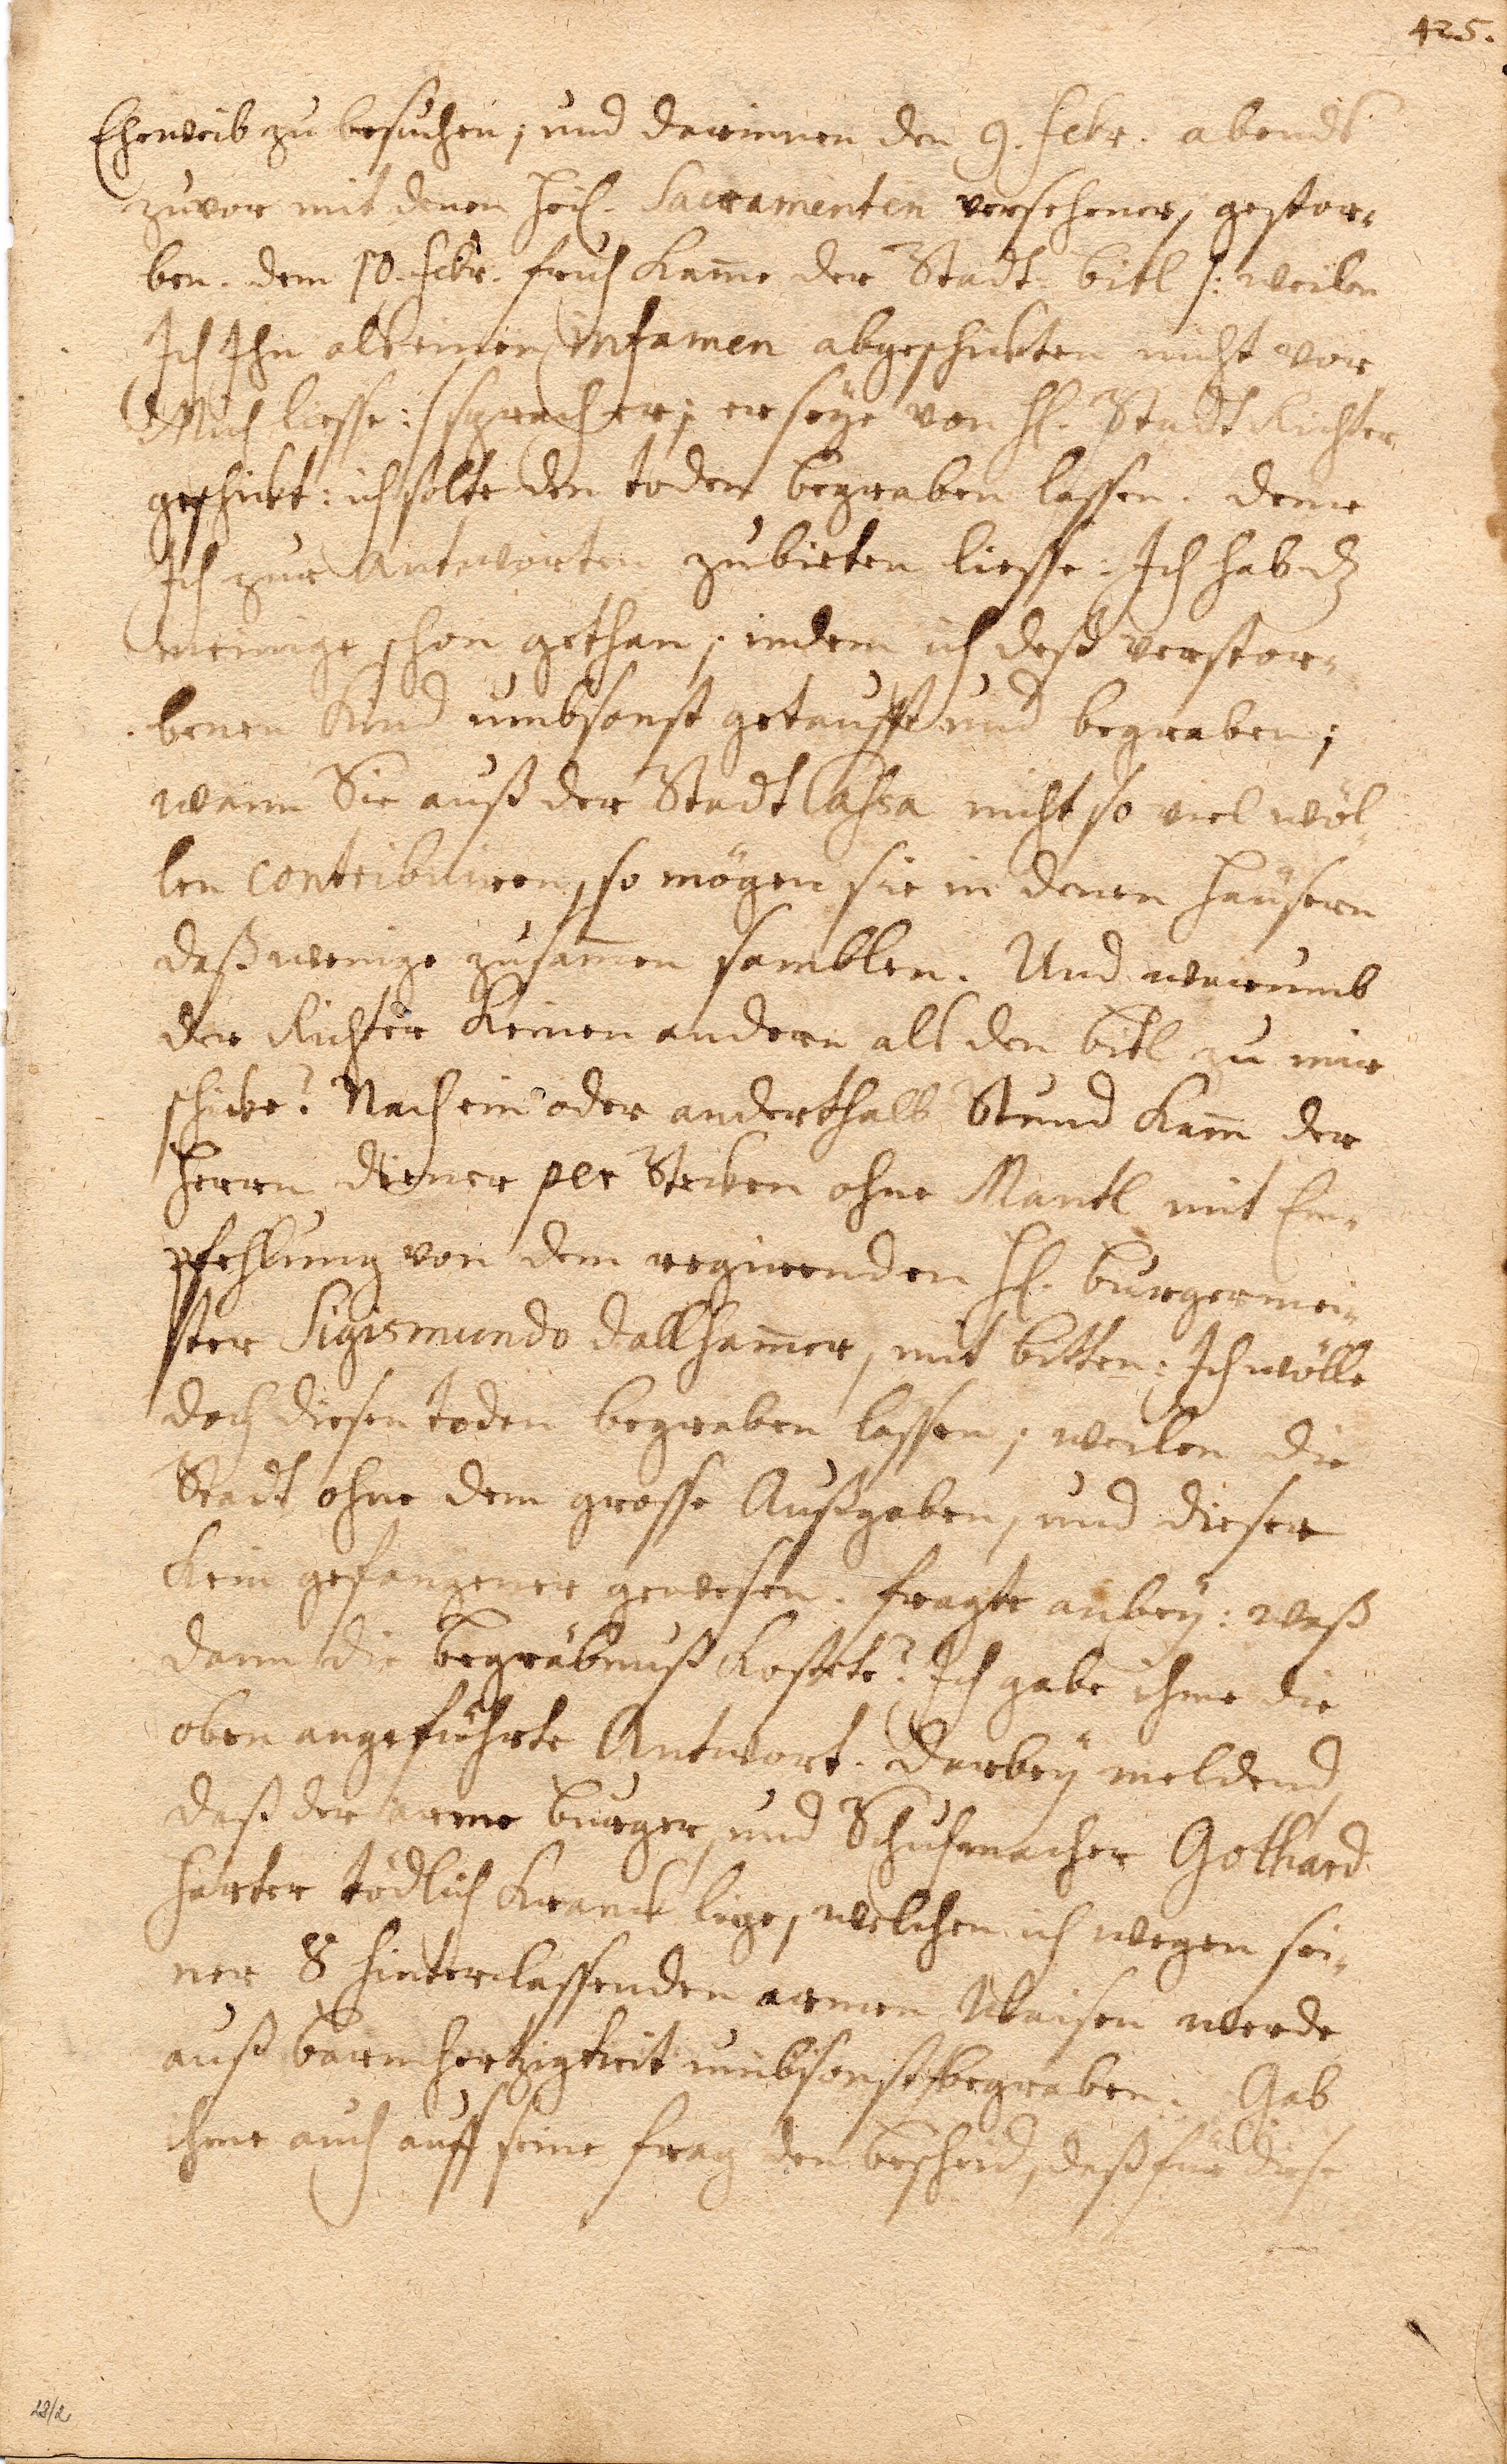 425.
Eheweib zu besuchen; und darinnen den 9. Febr. abends
zuvor mit denen heil. Sacramenten versehener, gestor-
ben. dem 10. Febr. früh kame der Stadt bitl /: weilen
Ich Ihn als einen infamen abgeschickten nicht vor
Mich liesse :/ sprach er; er seÿe von H. Stadt Richter
geschickt: ich solte den toden begraben lassen. deme
Ich zur Antworten zubieten liesse: Ich hab dz
meinige schon gethan, indem ich deß verstor-
benen Kind umbsonst getaufft und begraben;
wann Sie auß der Stadt Cassa nicht so viel wöl-
len contribuiren, so mögen sie in denen Häusern
daß wenige zusamen samblen. Und warumb
der Richter keinen andern als den bitl zu mir
schicke? Nach ein oder anderthalb Stund kam der
Herrn diener per Stecken ohne Mantl mit Em-
pfehlung von dem regirenden H. burgermei-
ster Sigismundo Dallhamer, mit bitten: Ich wölle
doch diesen toden begraben lassen, weilen die
Stadt ohne dem grosse Außgaben, und dieser
kein gefangener gewesen. fragte anbeÿ: waß
dann die begräbnuß kostete? Ich gabe ihme die
oben angeführte Antwort. darbeÿ meldend,
daß der arme burger und Schuhmacher Gothard
Harter tödlich kranck lige, welchen ich wegen sei-
ner 8 hinterlassenden armen Waisen werde
auß barmhertzigkeit umbsonst begraben. Gab
ihme auch auff seine frag den bescheid, daß für diese
28/2